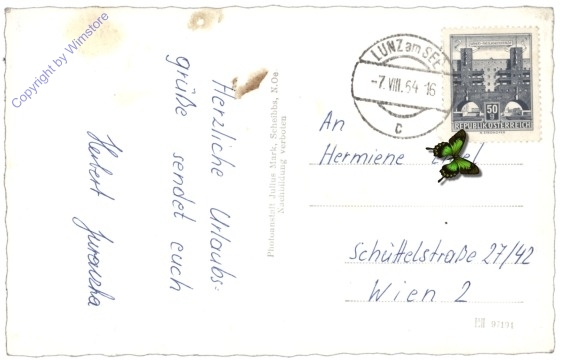 Copyright by Wimstore
Herzliche Urlaubs-
grüße sendet euch
Hubert
Photoanstalt Julius Mark, Scheibbs, N.Oe
Nachahmung verboten
LUNZ am SEE
-7.VIII.64-16
c
50 g
REPUBLIK ÖSTERREICH
An
Hermiene
Schüttelstraße 27/42
Wien 2